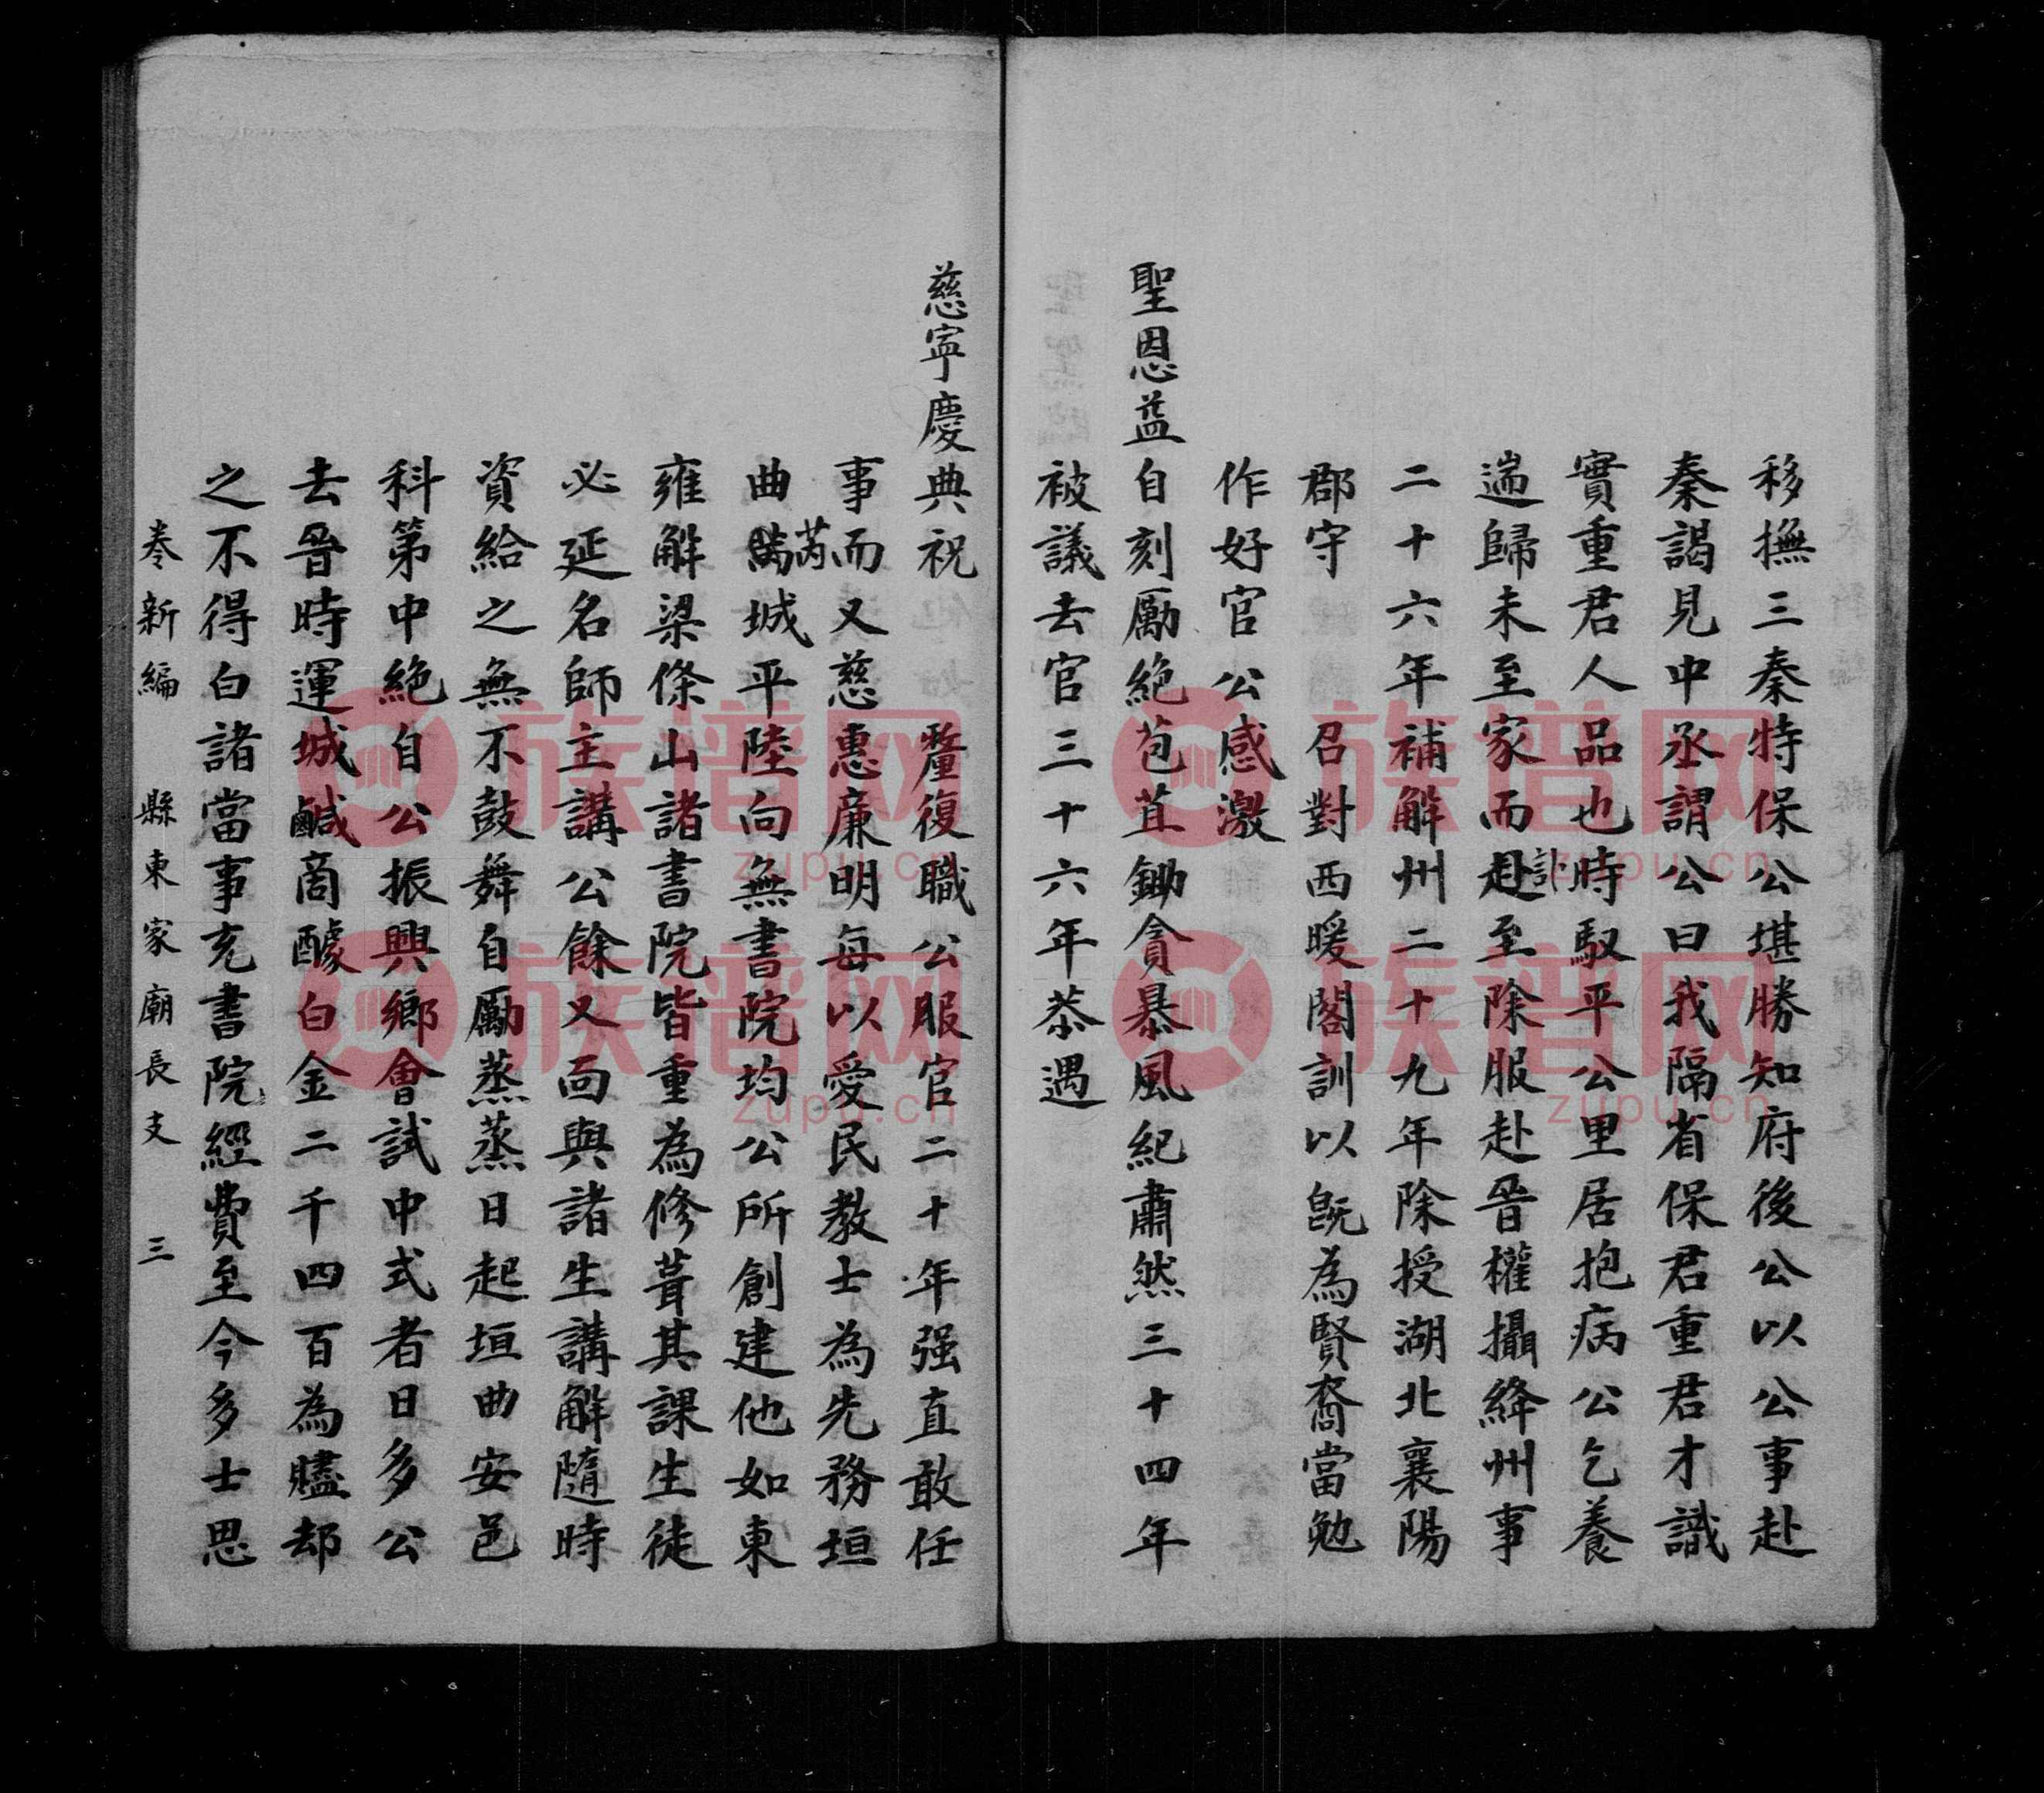 移撫三秦特保公堪勝知府後公以公事赴
秦謁見中丞謂公曰我隔省保君重君才識
實重君人品也時馭平公里居抱病公乞養
遄歸未至家而赴訃至除服赴晉權攝絳州事
二十六年補解州二十九年除授湖北襄陽
郡守 召對西暖閣訓以既為賢裔當勉
作好官公感激
聖恩益自刻勵絶苞苴鋤貪暴風紀肅然三十四年
被議去官三十六年恭遇
慈寧慶典祝 釐復職公服官二十年强直敢任
事而又慈惠廉明每以愛民教士為先務垣
曲芮城平陸向無書院均公所創建他如東
雍解梁條山諸書院皆重為修葺其課生徒
必延名師主講公餘又面與諸生講解隨時
資給之無不鼓舞自勵蒸蒸日起垣曲安邑
科第中絶自公振興鄉會試中式者日多公
去晉時運城鹹商醵白金二千四百為贐却
之不得白諸當事充書院經費至今多士思
卷新編 縣東家廟長支 三
族谱网
zupu.cn
族谱网
zupu.cn
族谱网
zupu.cn
族谱网
zupu.cn